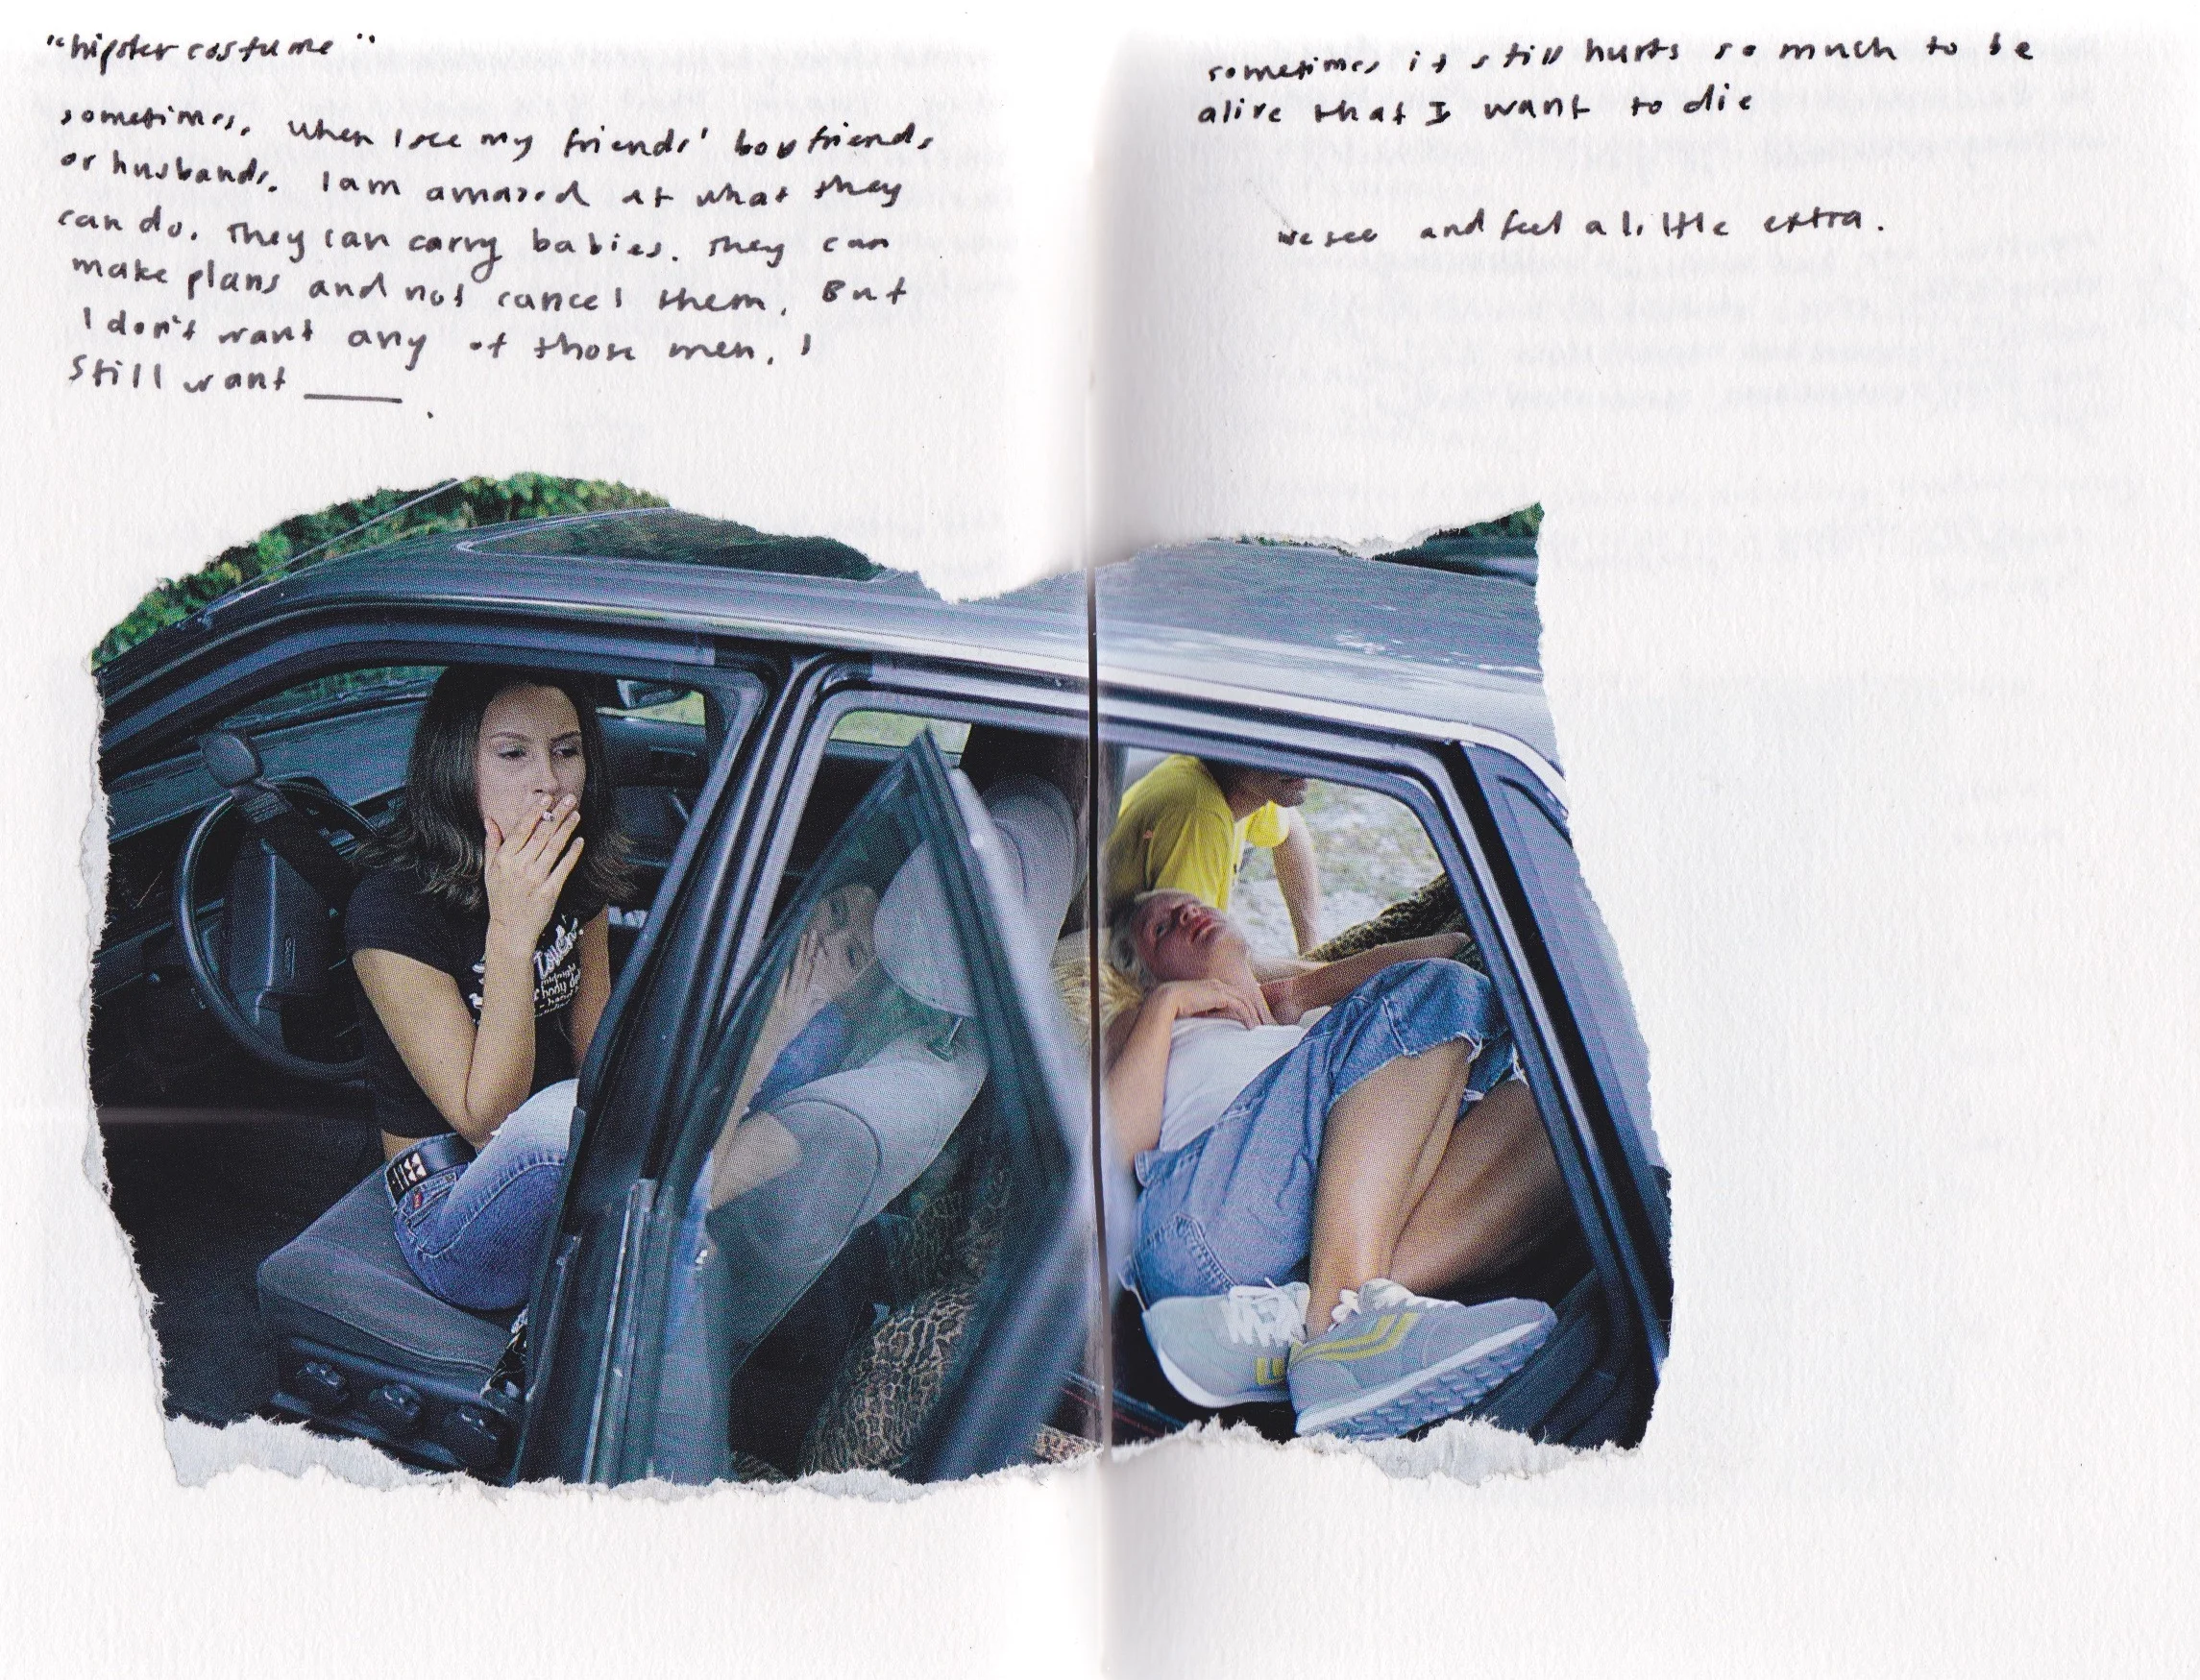 "hipster costume"
sometimes, when I see my friends' boyfriends
or husbands, I am amazed at what they
can do. They can carry babies. They can
make plans and not cancel them. But
I don't want any of those men. I
Still want ____.
sometimes it still hurts so much to be
alive that I want to die
we see and feel a little extra.
Touch
midnight
body